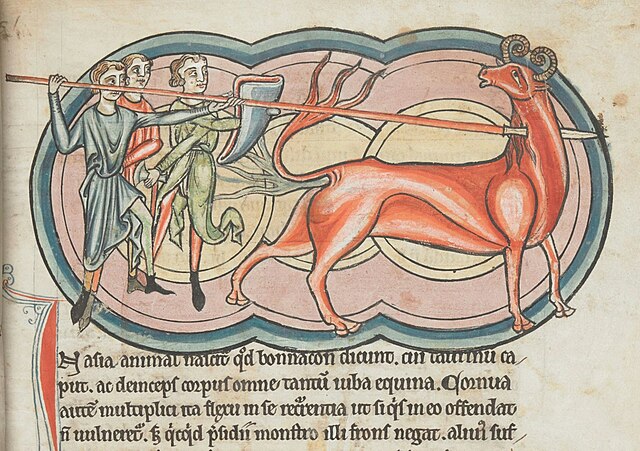 N asia animal nascit̄ qđ bonnacon dicunt. cui taurinū ca
put. ac deinceps corpus omne tantū iuba equina. Cornua
autē multiplici ita flexu in se recurrentia ut si q̇s in eo offendat
ñ uulneret̄. Sꝫ q̇cq̇d p̄sidii monstro illi frons negat. aluus suf